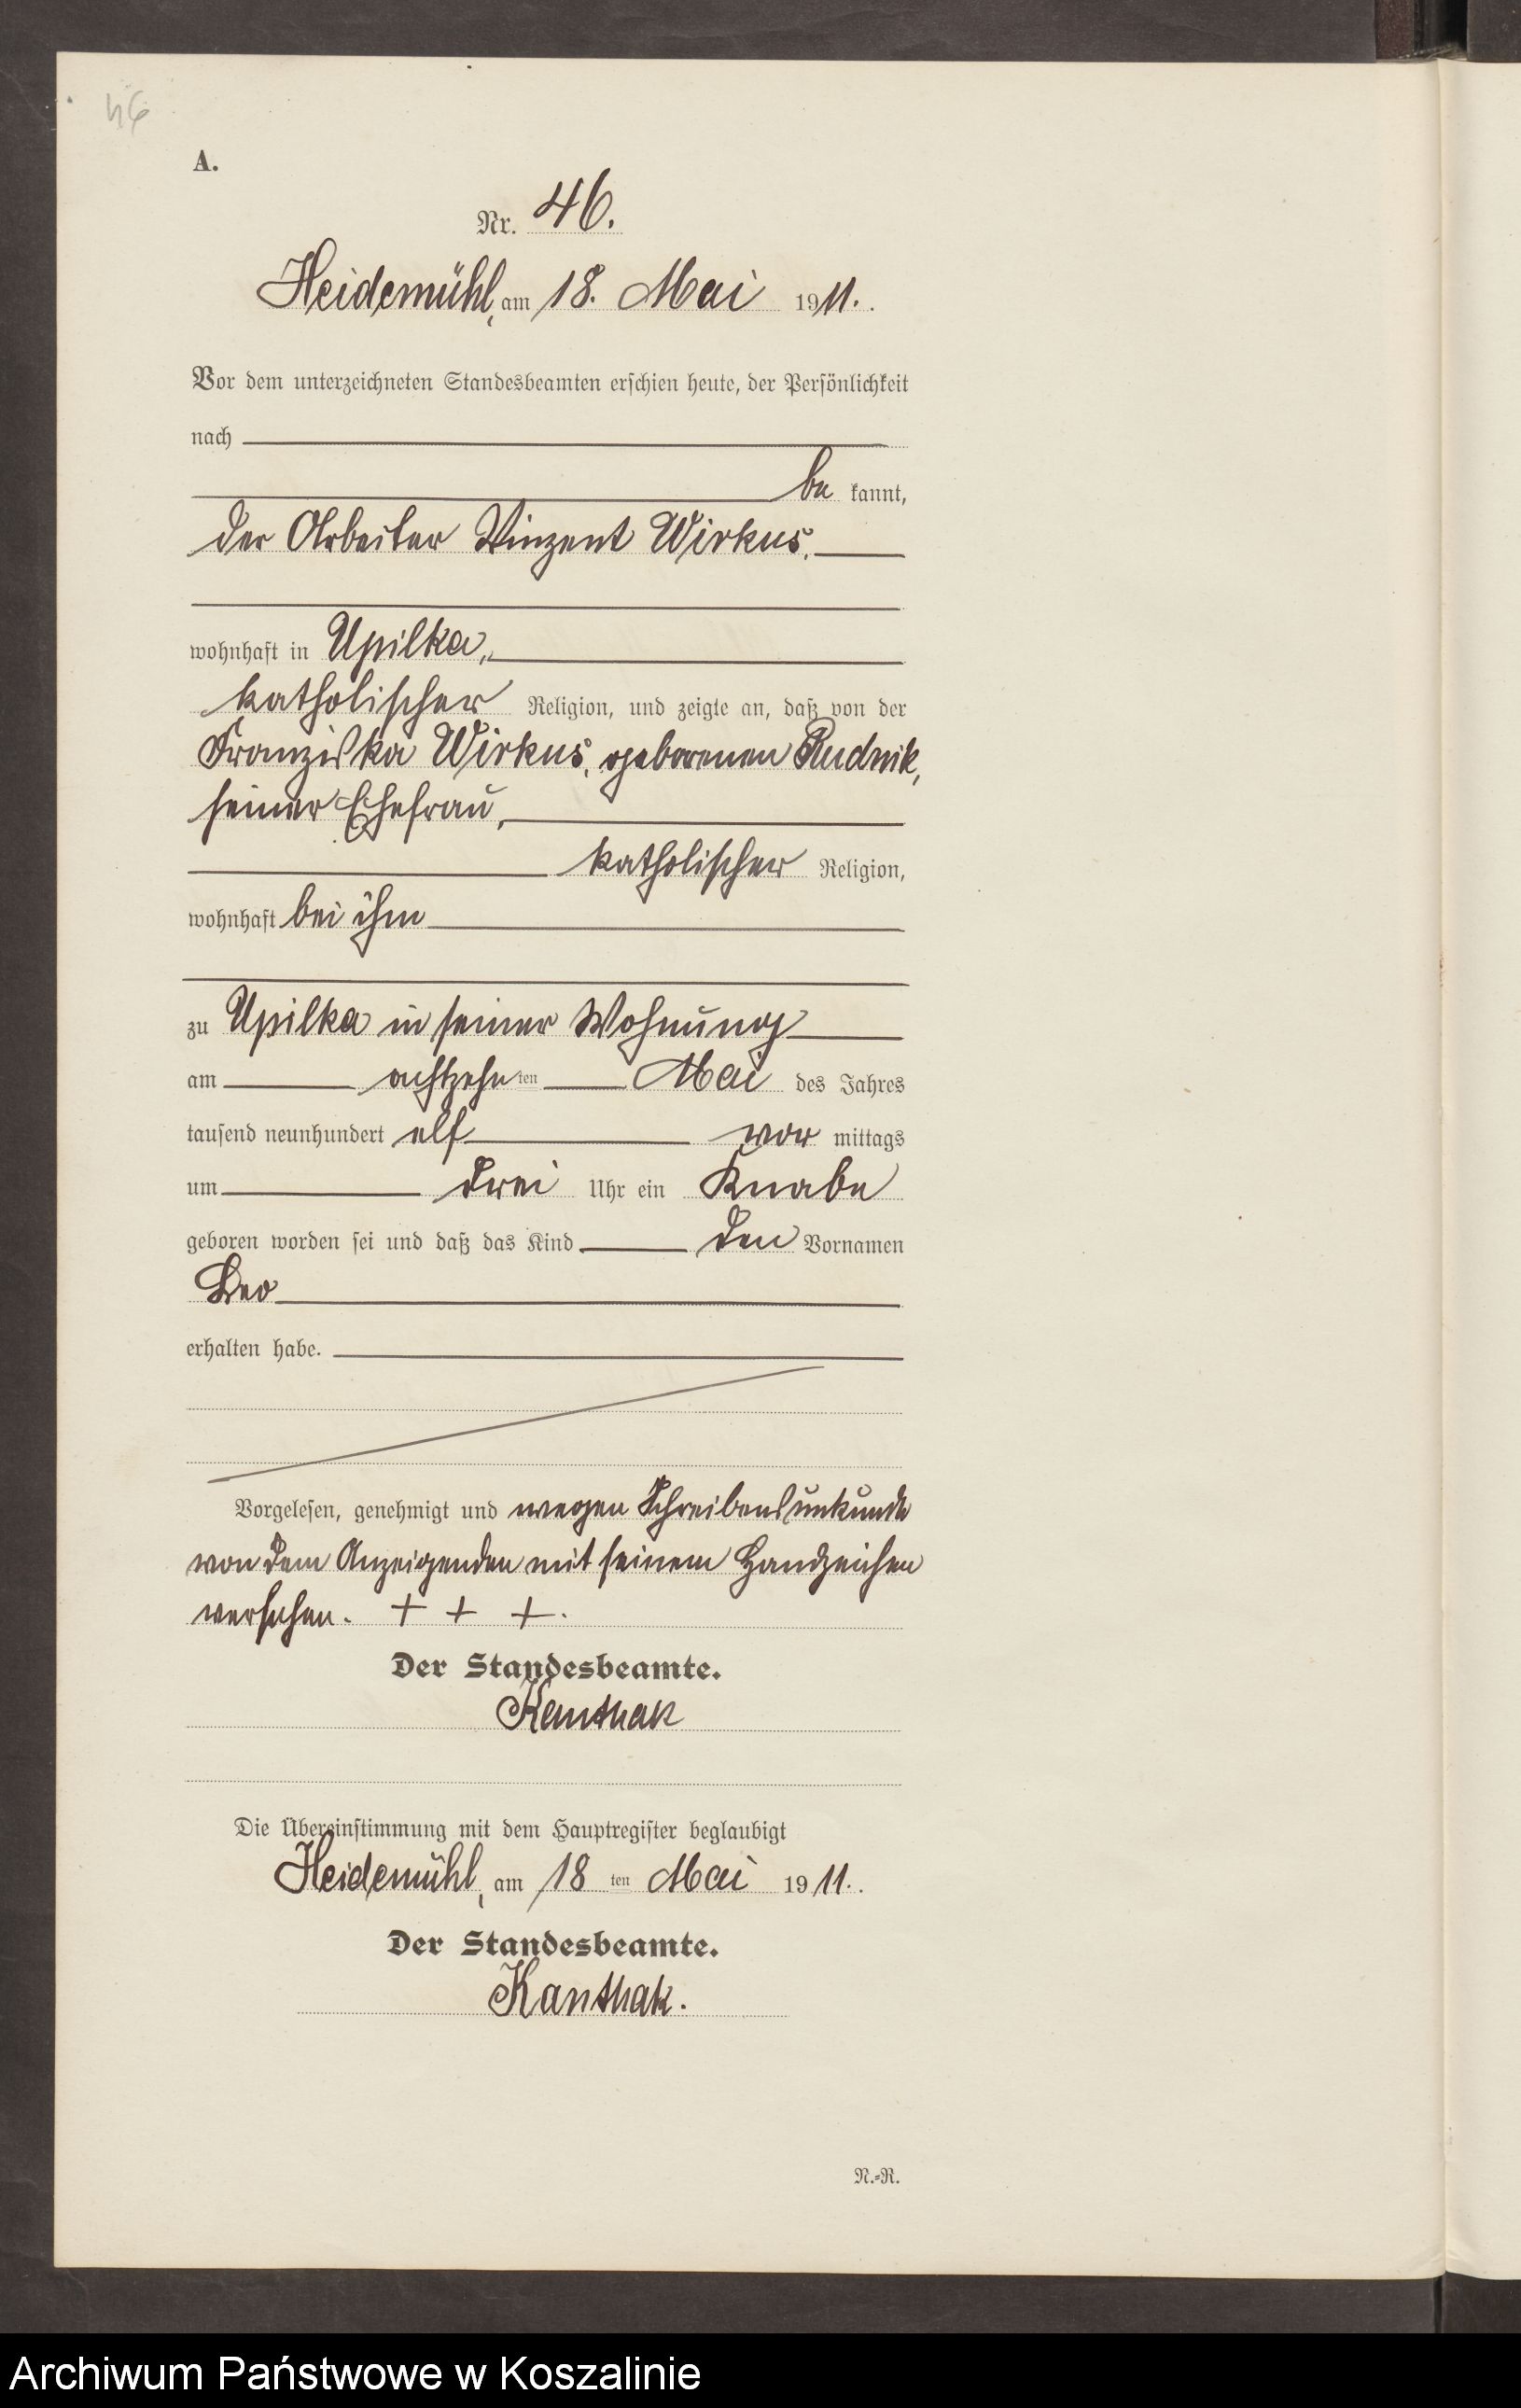 46
A.
Nr. 46.
Heidemühl, am 18. Mai 1911.
Vor dem unterzeichneten Standesbeamten erschien heute, der Persönlichkeit
nach
be kannt,
der Arbeiter Vinzent Wirkus,
wohnhaft in Upilka,
katholischer Religion, und zeigte an, daß von der
Franziska Wirkus, geborenen Rudnik,
seiner Ehefrau,
katholischer Religion,
wohnhaft bei ihm
zu Upilka in seiner Wohnung
am achtzehn ten Mai des Jahres
tausend neunhundert elf vor mittags
um drei Uhr ein Knabe
geboren worden sei und daß das Kind den Vornamen
Leo
erhalten habe.
Vorgelesen, genehmigt und wegen Schreibensunkunde
von dem Anzeigenden mit seinem Handzeichen
versehen. + + +.
Der Standesbeamte.
Kanthak
Die Übereinstimmung mit dem Hauptregister beglaubigt
Heidemühl, am 18 ten Mai 1911.
Der Standesbeamte.
Kanthak.
N.-R.
Archiwum Państwowe w Koszalinie